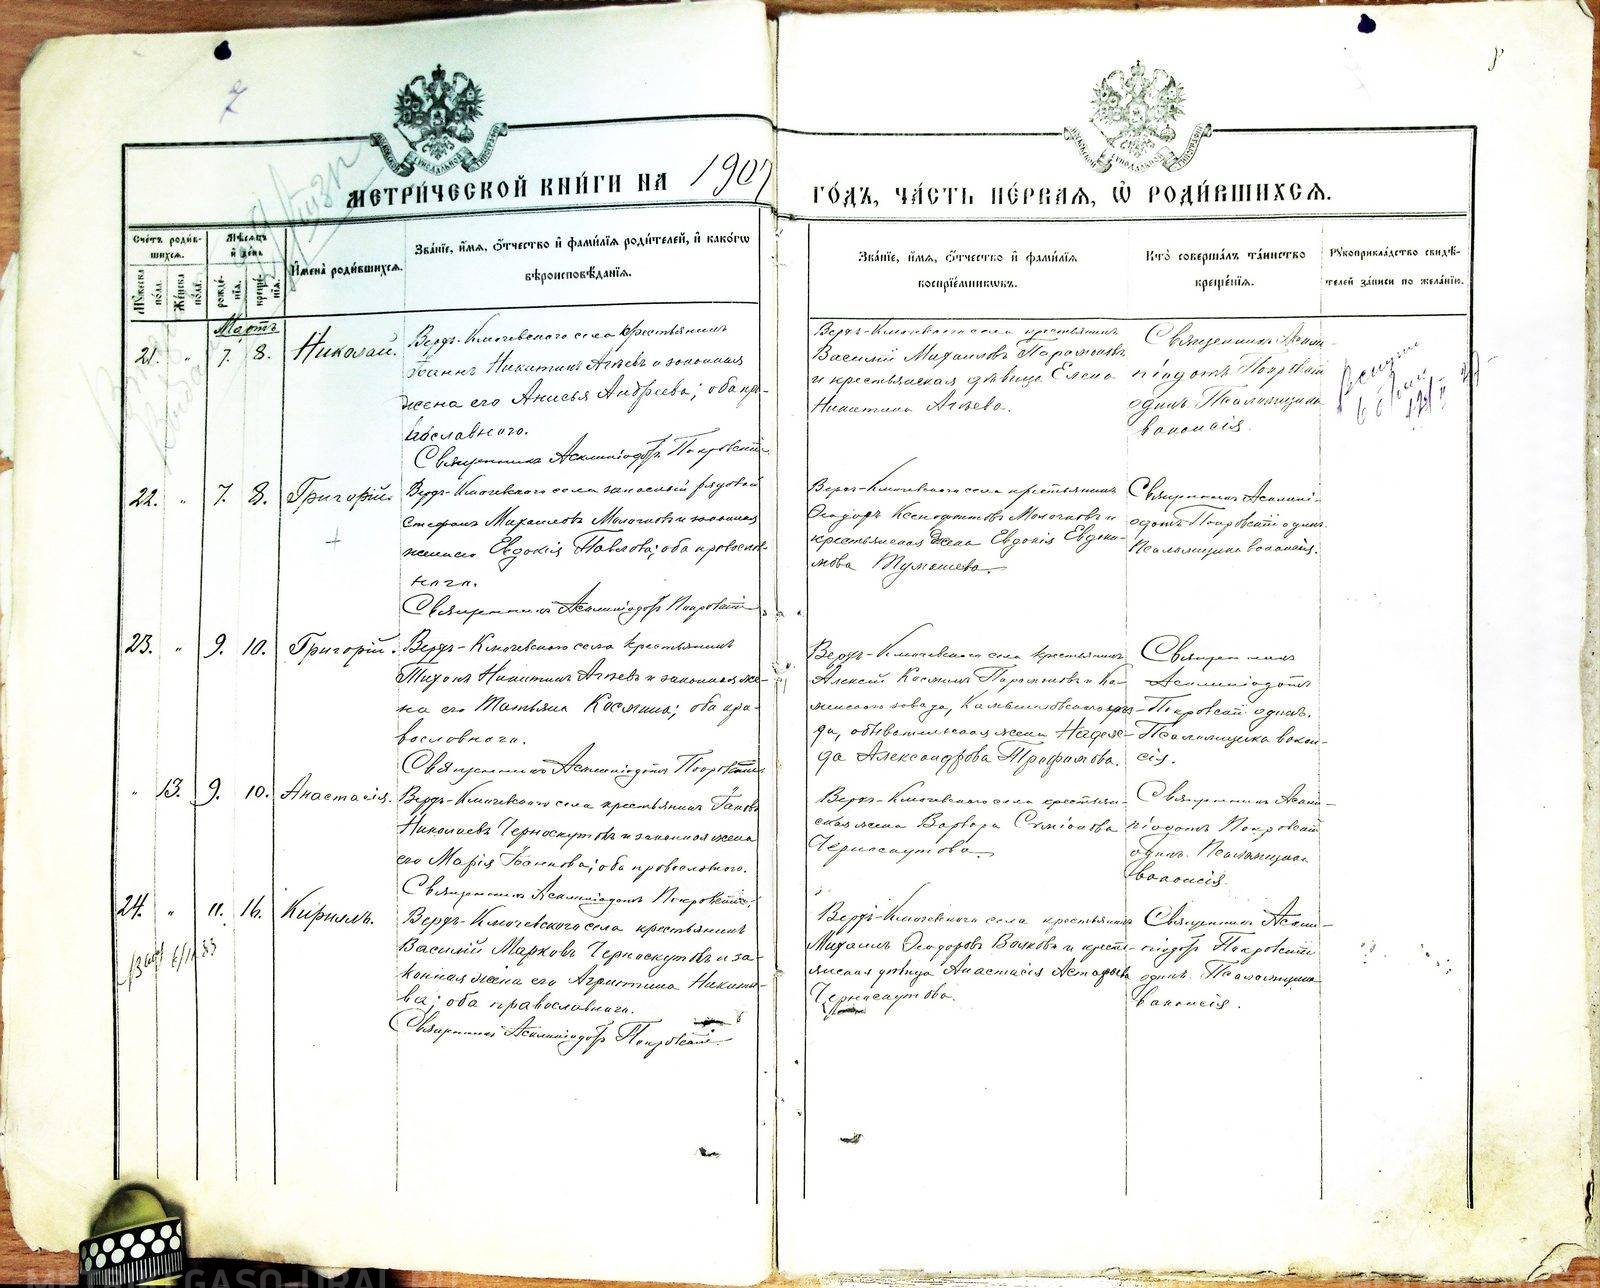 7
МЕТРИ́ЧЕСКОЙ КНИ́ГИ НА 1907
ГО́ДЪ, ЧА́СТЬ ПЕ́РВАЯ, Ѽ РОДИ́ВШИХСЯ.
Сче́тъ роди́в-
шихся.
Мѣ́сяцъ
и҆ де́нь
Му́жеска
по́ла.
Же́нска
по́ла.
рожде́-
нїя.
креще́-
нїя.
И҆мена̀ роди́вшихся.
Зва́нїе, и҆́мя, ѻ҆́тчество и҆ фами́лїя роди́телей, и҆ како́гѡ
вѣроисповѣ́данїя.
Зва́нїе, и҆́мя, ѻ҆́тчество и҆ фами́лїя
воспрїе́мникѡвъ.
Кто̀ соверша́лъ та́инство
креще́нїя.
Рꙋкоприкла́дство свидѣ́-
телей за́писи по жела́нїю.
Мартъ
21. " 7. 8. Николай.
Верхъ-Ключевского села крестьянинъ
Іоаннъ Никитинъ Агѣевъ и законная
жена его Анисья Андреева; оба пра-
вославного.
Священникъ Асклипіодотъ Покровскій
Верхъ-Ключевского села крестьянинъ
Василій Михаиловъ Парамоновъ
и крестьянская дѣвица Елена
Никитина Агѣева.
Священникъ Аскли-
піодотъ Покровскій
одинъ. Псаломщика
вакансія.
22. " 7. 8. Григорій.
Верхъ-Ключевского села запасный рядовой
Стефанъ Михаиловъ Молочковъ и законная
жена его Евдокія Павлова; оба православ-
наго.
Священникъ Асклипіодотъ Покровскій
Верхъ-Ключевского села крестьянинъ
Ѳеодоръ Ксенофонтовъ Молочковъ и
крестьянская жена Евдокія Евдоки-
мова Тумашева.
Священникъ Асклипі-
одотъ Покровскій одинъ.
Псаломщика вакансія.
23. " 9. 10. Григорій.
Верхъ-Ключевского села крестьянинъ
Тихонъ Никитинъ Агѣевъ и законная же-
на его Татьяна Космина; оба пра-
вославнаго.
Священникъ Асклипіодотъ Покровскій
Верхъ-Ключевского села крестьянинъ
Алексій Косминъ Парамоновъ и Ка-
менского завода, Камышловского уѣз-
да, обывательская жена Надеж-
да Александрова Трофимова.
Священникъ
Асклипіодотъ
Покровскій одинъ.
Псаломщика вакан-
сія.
" 13. 9. 10. Анастасія.
Верхъ-Ключевского села крестьянинъ Іаковъ
Николаевъ Черноскутовъ и законная жена
его Марія Іоаннова; оба православного.
Священникъ Асклипіодотъ Покровскій.
Верхъ-Ключевского села крестьян-
ская жена Варвара Симіонова
Черноскутова.
Священникъ Аскли-
піодотъ Покровскій
одинъ. Псаломщика
вакансія.
24. " 11. 16. Кириллъ.
Верхъ-Ключевского села крестьянинъ
Василій Марковъ Черноскутовъ и за-
конная жена его Агриппина Никити-
на; оба православнаго.
Священникъ Асклипіодотъ Покровскій.
Верхъ-Ключевского села крестьянинъ
Михаилъ Ѳеодоровъ Волковъ и кресть-
янская дѣвица Анастасія Астафьева
Черноскутова.
Священникъ Аскли-
піодотъ Покровскій
одинъ. Псаломщика
вакансія.